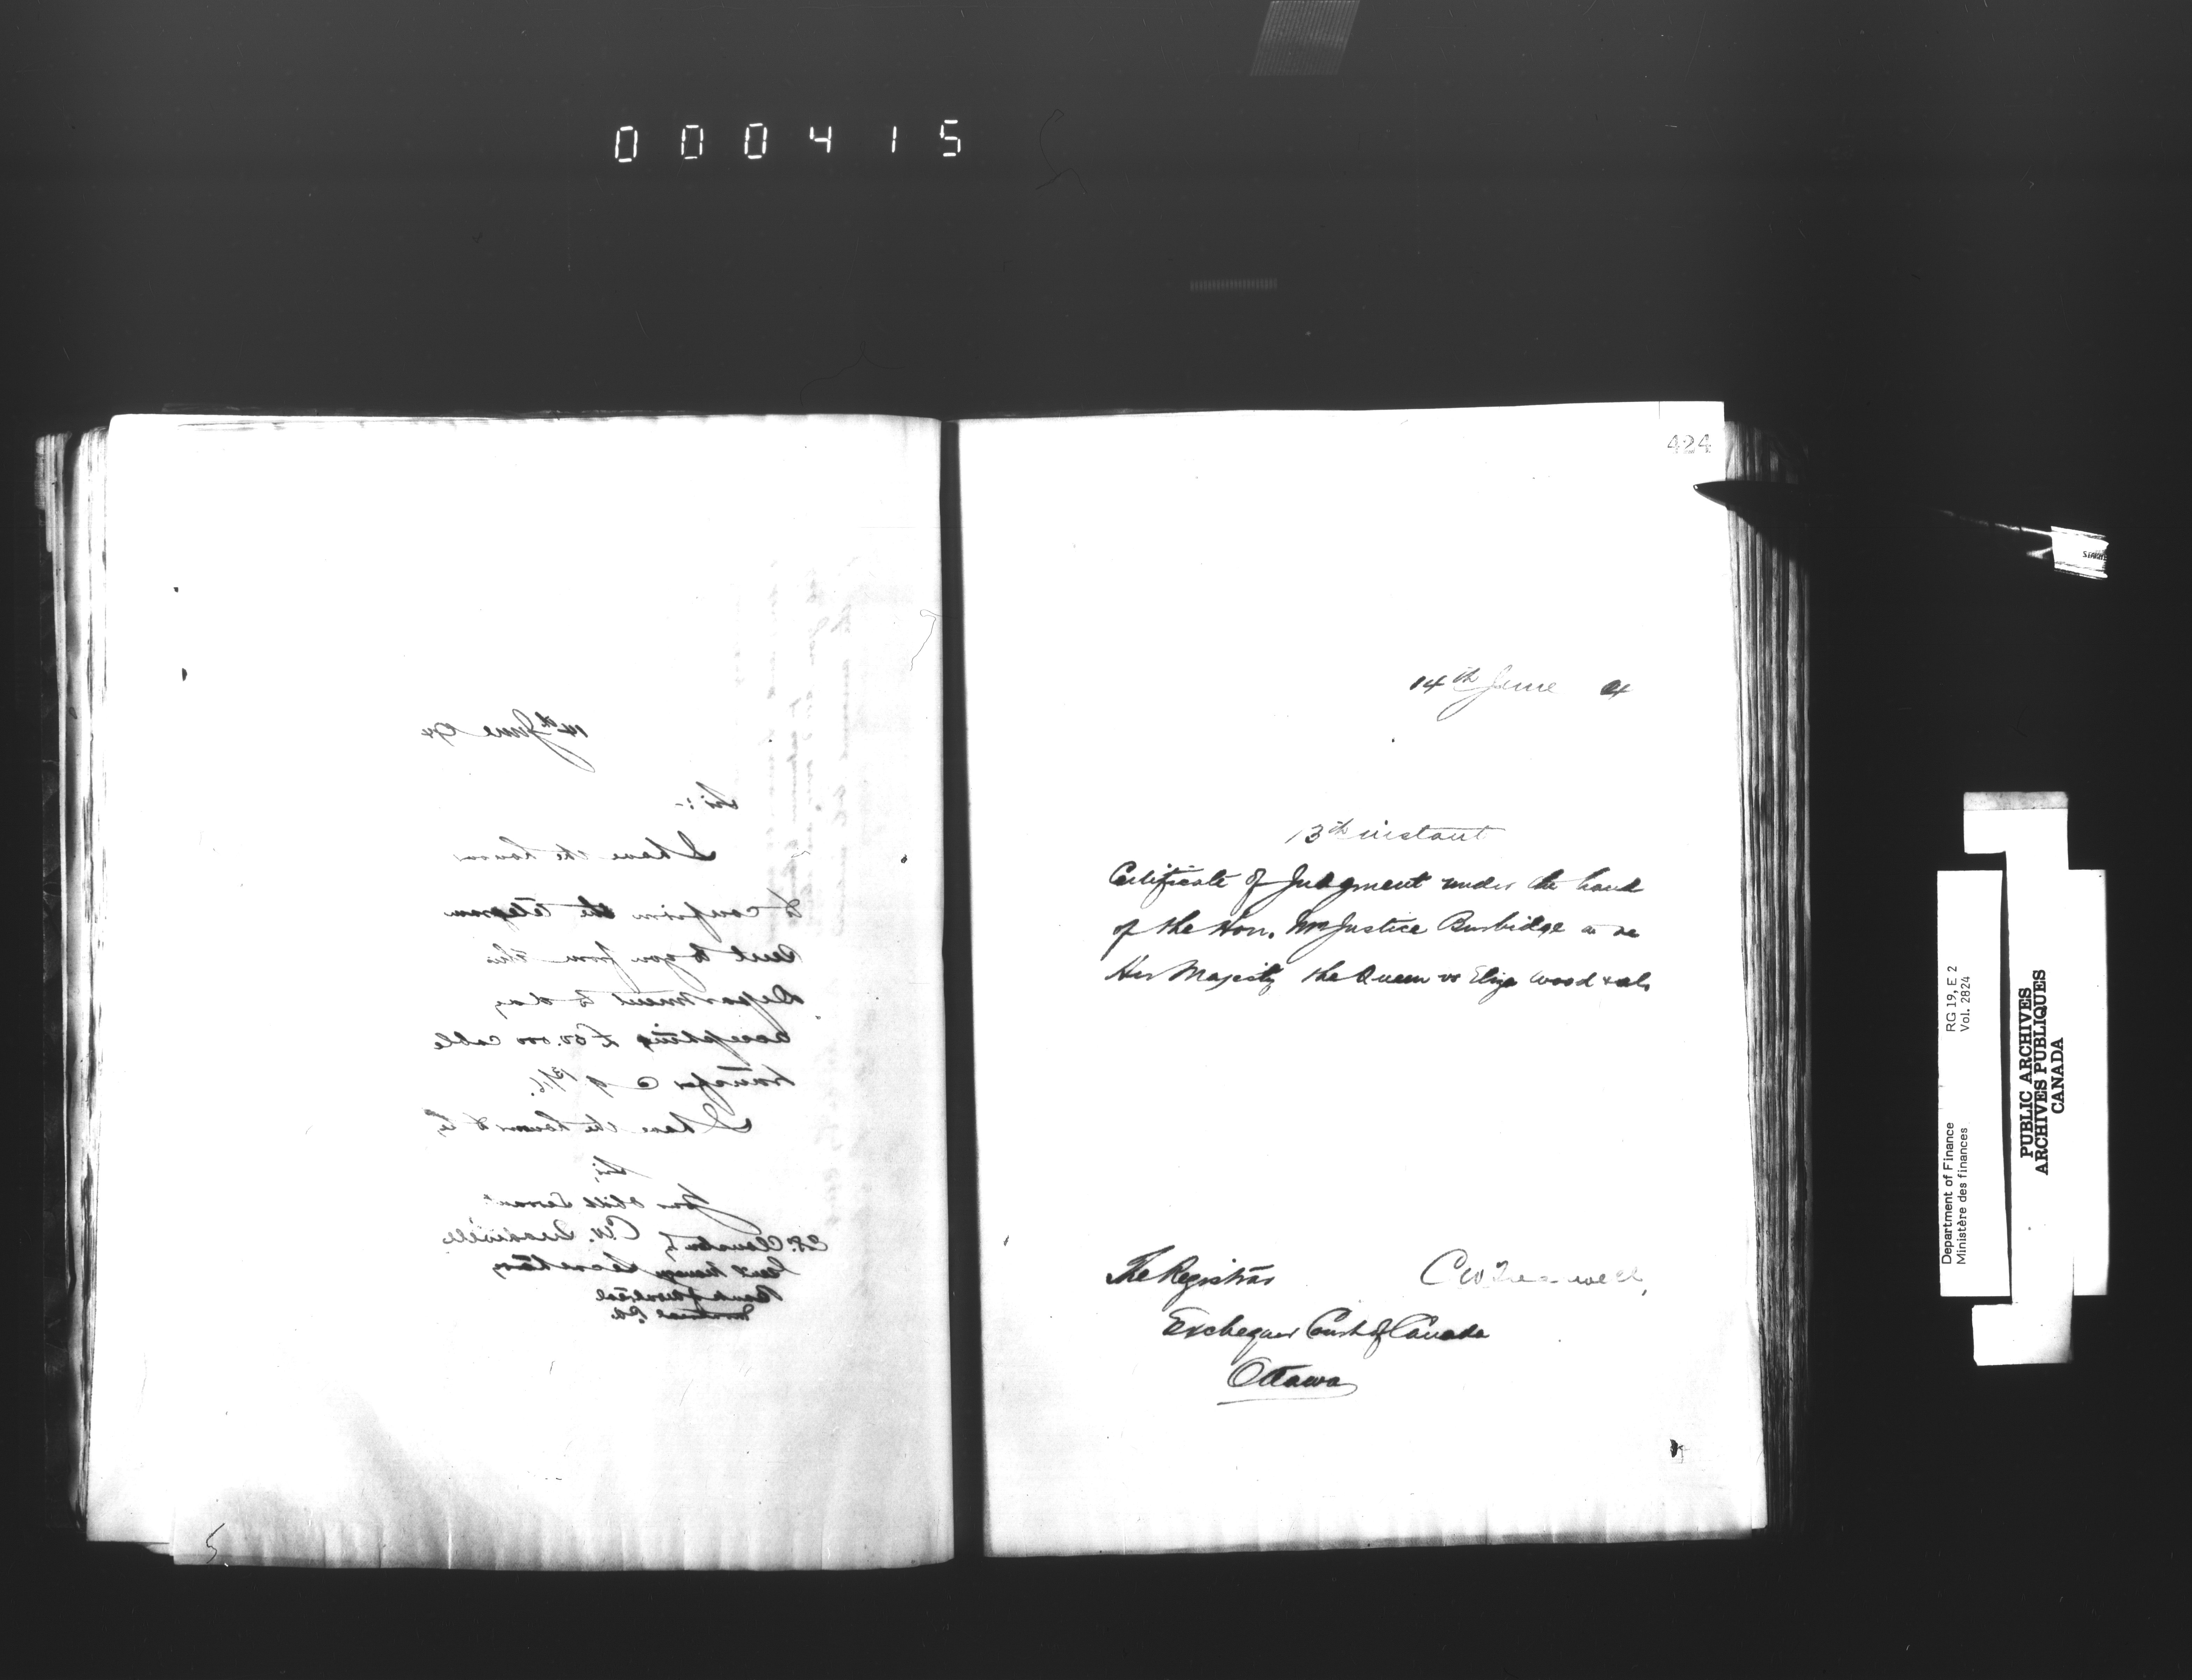 000415
14th June 94
Sir:-
I have the honour
to confirm the telegram
sent to you from this
Department to day
accepting £50.000 cable
transfer @ 9
I have the honour to be
Sir,
Your obdt Servant
E.S. Clouston Esq
Secretary
Bank of Montreal
Montreal P.Q.
5
424
14th June 4
13th instant
Certificate of Judgment under the hand
of the Hon. Mr Justice Burbidge in re
Her Majesty the Queen vs Eliza Wood & al.
The Registrar
Exchequer Court of Canada
Ottawa
Department of Finance RG 19, E 2
Ministère des finances Vol. 2824
PUBLIC ARCHIVES
ARCHIVES PUBLIQUES
CANADA